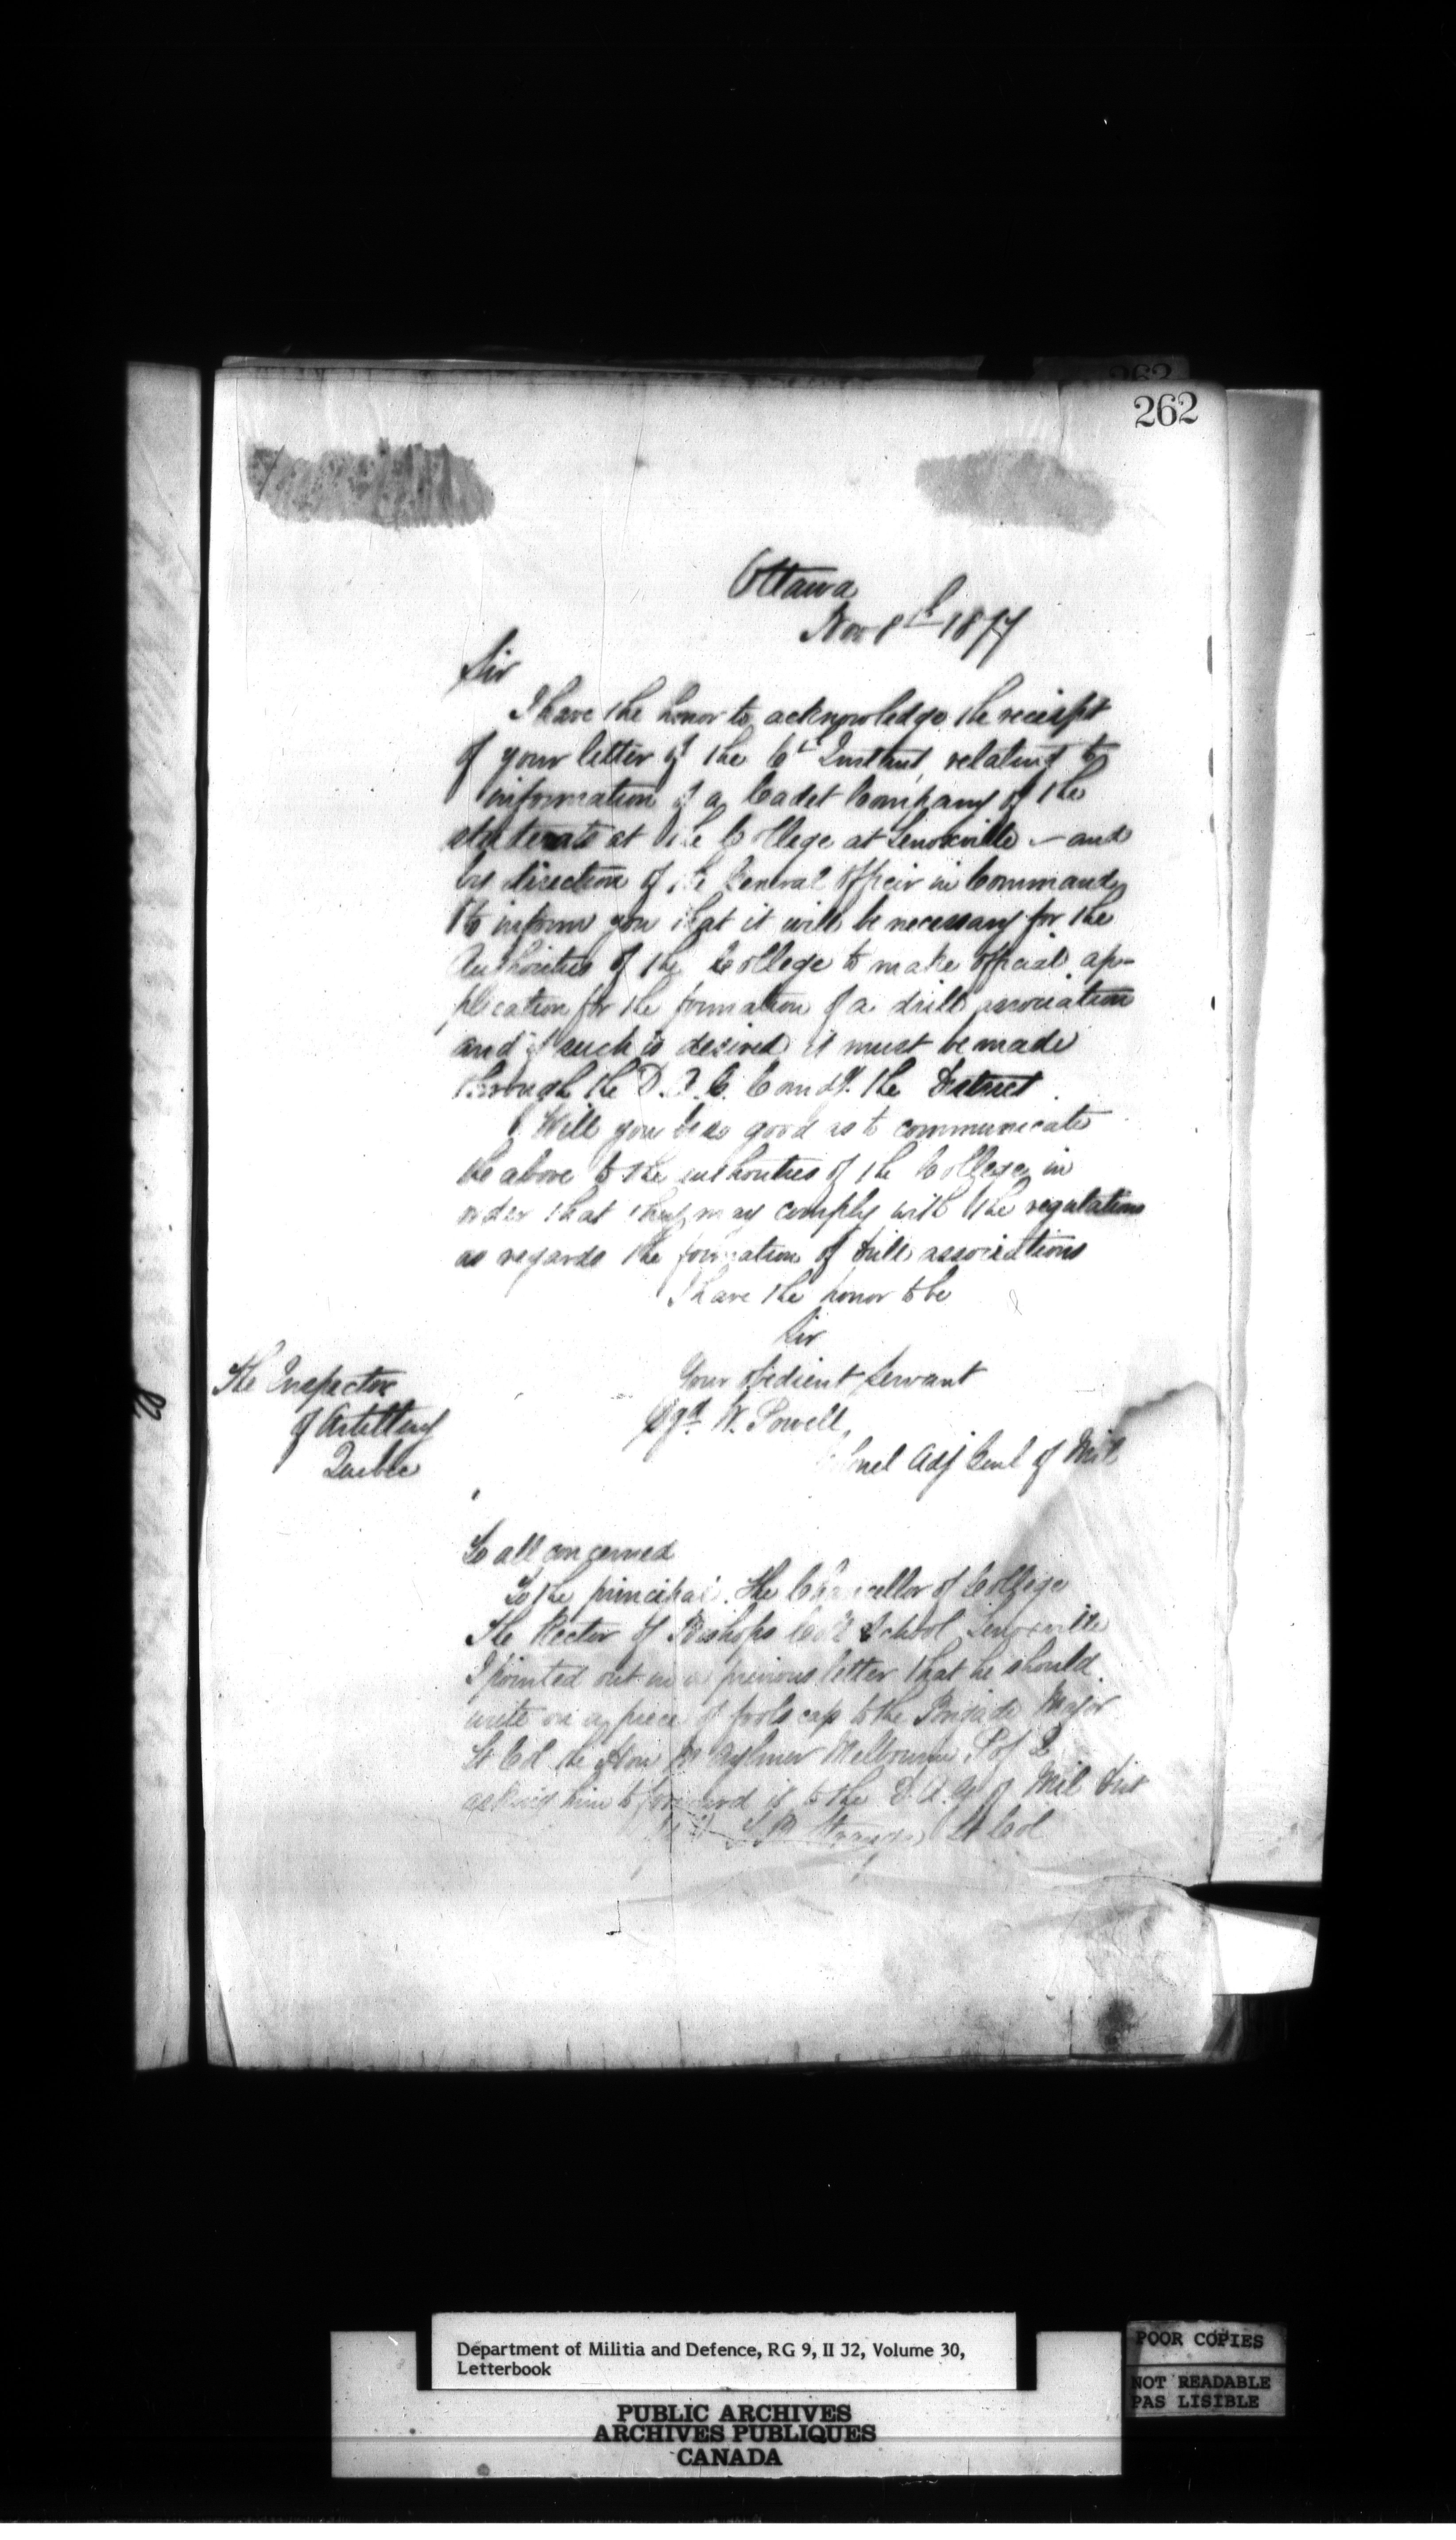 262
Ottawa
Nov 8th 1877
Sir
I have the honor to acknowledge the receipt
of your letter of the 6th Instant, relating to
information of a Cadet Company of the
at the College at Lenoxville - and
by direction of the General Officer in Command
to inform you that it will be necessary for the
Authorities of the College to make official ap-
plication for the formation of a drill association
and if such is desired it must be made
through the D.A.G. Comdg. the District.
Will you be so good as to communicate
the above to the authorities of the College in
order that they may comply with the regulations
as regards the formation of drill associations
I have the honor to be
Sir
Your obedient Servant
Sgd. W. Powell
Colonel Adj Genl of Mil
The Inspector
of Artillery
Quebec
To all concerned
To the principal. The Chancellor of College
The Rector of Bishops Coll School Lenoxville
I pointed out in a previous letter that he should
write on a piece of foolscap to the Brigade Major
Lt Col the Hon Aylmer Melbourne P of Q
asking him to forward it to the D.A.G of Mil Dist
T B Strange Lt Col
Department of Militia and Defence, RG 9, II J2, Volume 30,
Letterbook
PUBLIC ARCHIVES
ARCHIVES PUBLIQUES
CANADA
POOR COPIES
NOT READABLE
PAS LISIBLE